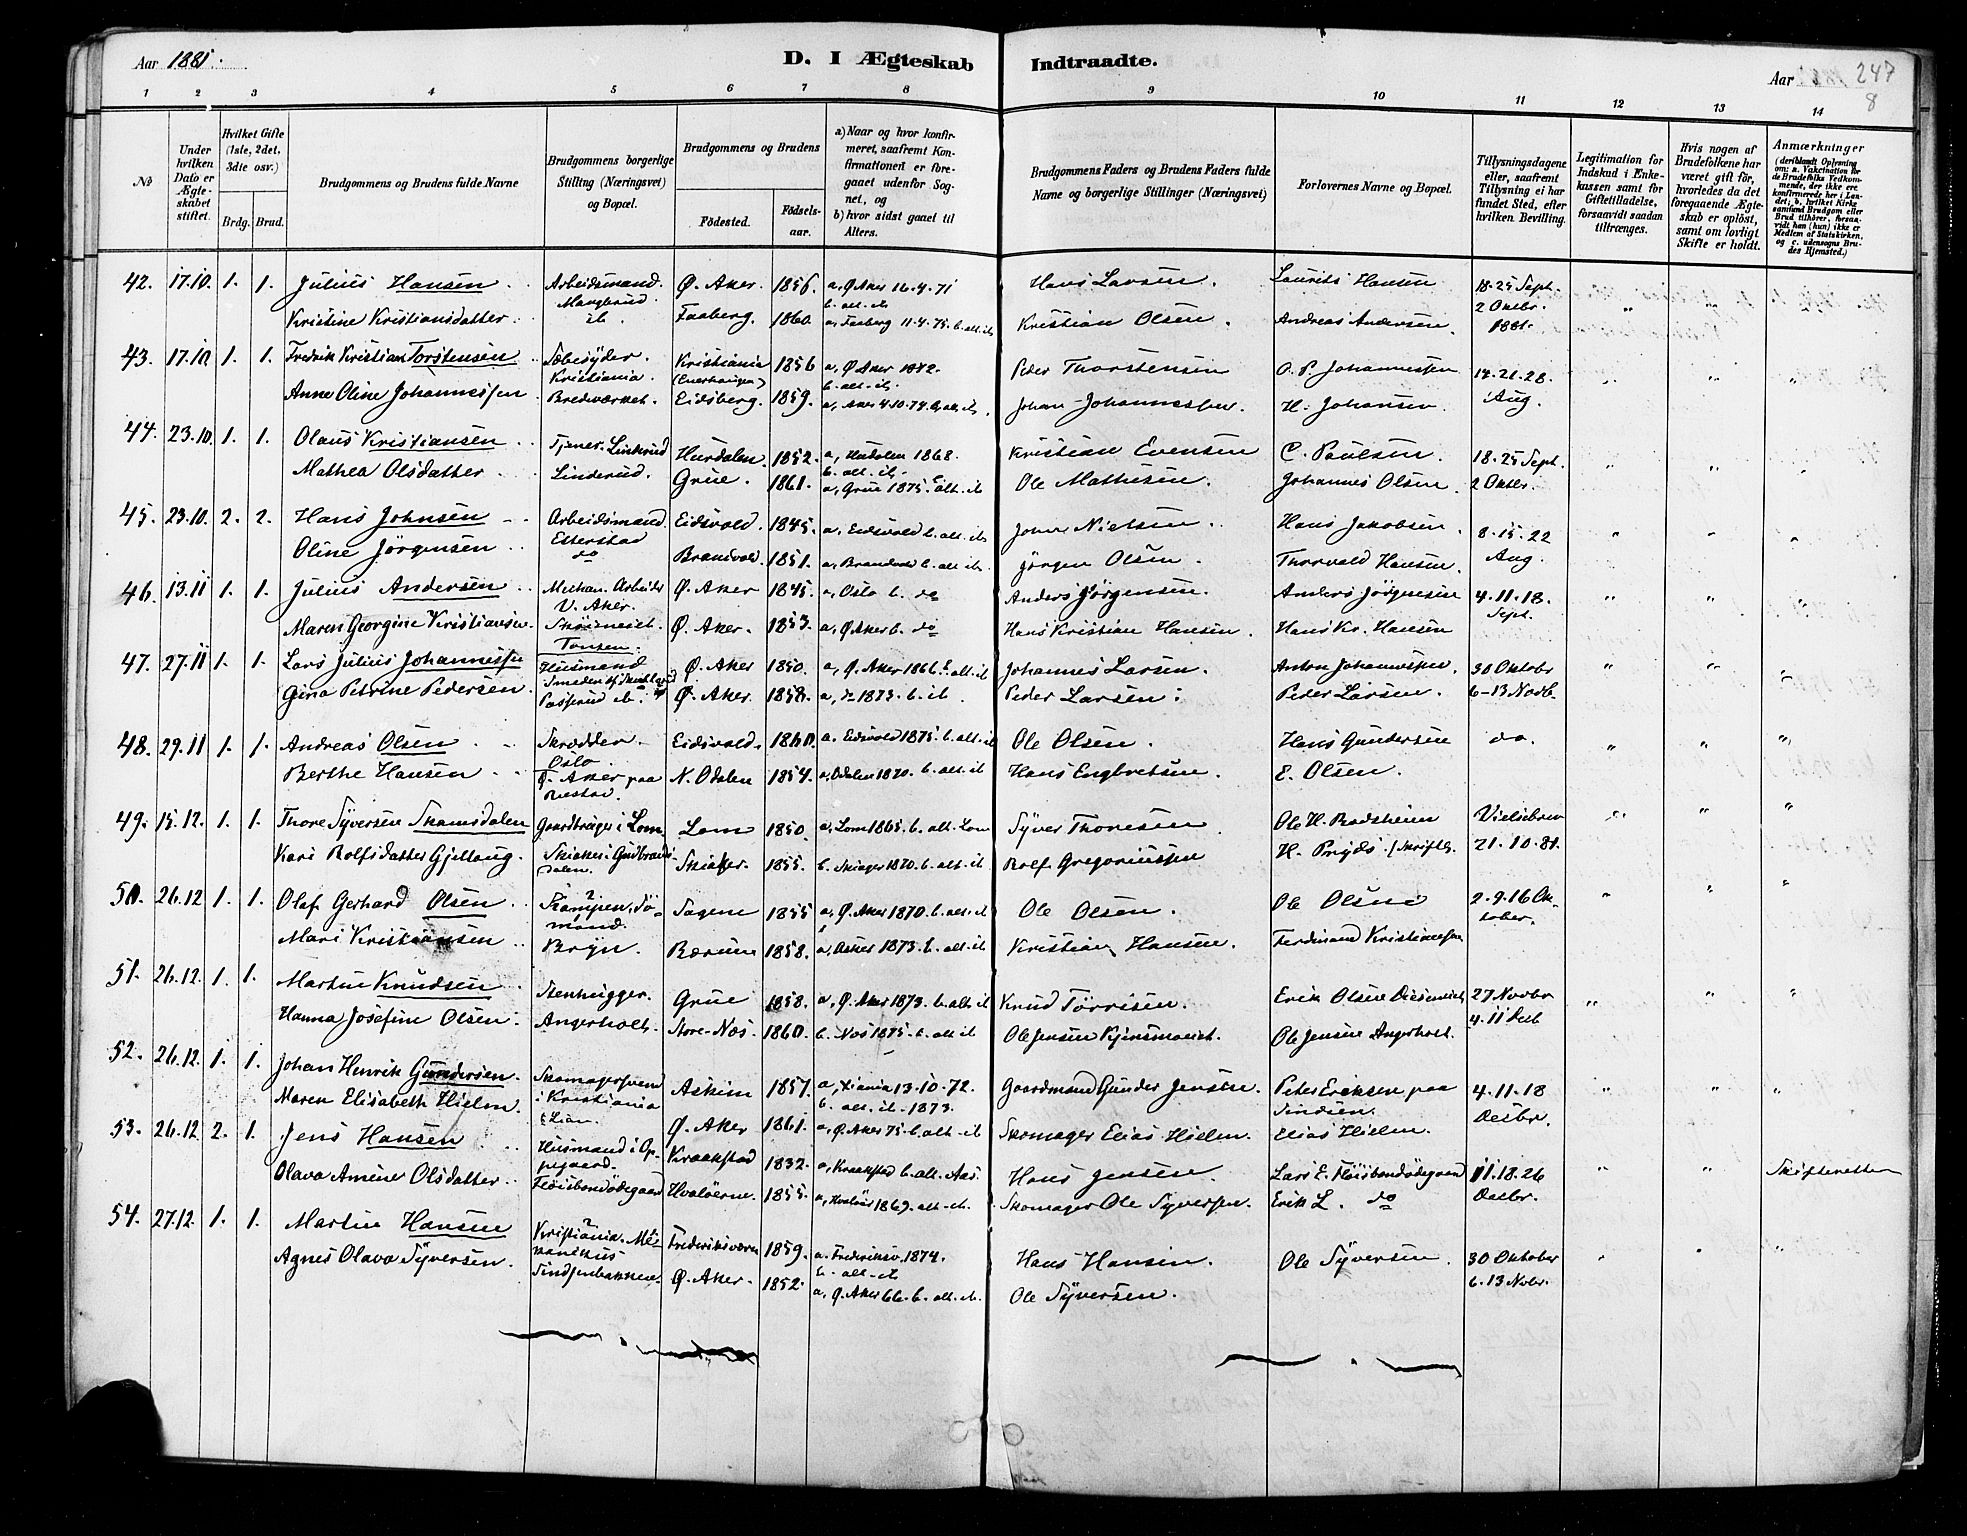 Aar 1881. D. I Ægteskab Indtraadte. Aar 247
8
1 2 3 4 5 6 7 8 9 10 11 12 13 14
No
Under hvilken Dato er Ægteskabet stiftet.
Hvilket Gifte (1ste, 2det, 3die osv.)
Brdg. Brud.
Brudgommens og Brudens fulde Navne
Brudgommens borgerlige Stilling (Næringsvei) og Bopæl.
Brudgommens og Brudens
Fødested. Fødselsaar.
a) Naar og hvor konfirmeret, saafremt Konfirmationen er foregaaet udenfor Sognet, og
b) hvor sidst gaaet til Alters.
Brudgommens Faders og Brudens Faders fulde Navne og borgerlige Stillinger (Næringsvei)
Forlovernes Navne og Bopæl.
Tillysningsdagene eller, saafremt Tillysning ei har fundet Sted, efter hvilken Bevilling.
Legitimation for Indskud i Enkekassen samt for Giftetilladelse, forsaavidt saadan tiltrænges.
Hvis nogen af Brudefolkene har været gift før, hvorledes da det foregaaende Ægteskab er opløst, samt om lovligt Skifte er holdt.
Anmærkninger
(deriblandt Oplysning om: a. Vaccination for de Brudefolks Vedkommende, der ikke ere konfirmerede her i Landet; b. hvilket Kirkesamfund Brudgom eller Brud tilhører, forsaavidt han (hun) ikke er Medlem af Statskirken, og c. udensogns Brudes Hjemsted.)
42. 17.10. 1. 1. Julius Hansen. Arbeidsmand. Ø. Aker. 1856. a, Ø Aker 16.4.71 b. alt. ib Hans Larsen. Laurits Hansen 18.25 Sept. 2 Oktbr. 1881.
Kristine Kristiansdatter. ib. Faaberg. 1860. a, Faaberg 11.4.75. b. alt. ib Kristian Olsen. Andreas Andersen.
43. 17.10. 1. 1. Fredrik Kristian Torstensen Sæbesyder. Kristiania. Kristiania 1856 a, Ø Aker 1872. b. alt. ib. Peder Thorstensen O. P. Johannessen 14.21.28. Aug.
Anne Oline Johannessen. Bredværket. Eidsberg. 1859. a, Aker 4.10.74. b, alt, ib. Johan Johannessen. H. Johansen.
44. 23.10. 1. 1. Olaus Kristiansen Tjener. Linderud Hurdalen. 1852. a, Hurdalen 1868. b. alt. ib. Kristian Evensen C. Paulsen. 18.25 Sept.
Mathea Olsdatter Linderud. Grue. 1861. a, Grue 1875. b alt. ib Ole Mathisen. Johannes Olsen. 2 Oktbr.
45. 23.10. 2. 2. Hans Johnsen Arbeidsmand. Etterstad Eidsvold. 1845. a, Eidsvold b. alt. ib John Nielsen. Hans Jakobsen. 8.15.22
Oline Jørgensen do Brandvold. 1851. a, Brandvold b. alt. ib Jørgen Olsen. Thorvald Hansen. Aug.
46. 13.11 1. 1. Julius Andersen Mekan. Arbeider V. Aker. Ø. Aker 1845. a, Oslo b. do Anders Jørgensen. Anders Jørgensen 4.11.18. Sept.
Maren Georgine Kristiansen. Ø. Aker. 1853. a, Ø Aker b. do Hans Kristian Hansen. Hans Kr. Hansen
47. 27.11 1. 1. Lars Julius Johannessen Tonsen. Husmand Ø. Aker 1850. a, Ø. Aker 1866 b. alt. ib Johannes Larsen. Anton Johannessen. 30 Oktobr
Gina Petrine Pedersen. Ø. Aker. 1858. a, do 1873. b. ib. Peder Larsen. Peder Larsen. 6-13 Novb.
48. 29.11 1. 1. Andreas Olsen Skrædder. Oslo Eidsvold. 1860. a. Eidsvold 1875. b. alt. ib Ole Olsen. Hans Gundersen do.
Berthe Hansen Ø. Aker paa N. Odalen 1854. a, Odalen 1870. b. alt. ib Hans Engbretsen. E. Olsen.
49. 15.12. 1. 1. Thore Syversen Skamsdalen Gaardbruger i Lom. Lom 1850. a, Lom 1865. b. alt. Lom Syver Thoresen Ole H. Vielsebrev
Kari Rolfsdatter Gjeltaug. Skiaker i Gudbrandsdalen. Skiaker. 1855. b. Skiager 1870. b. alt. ib Rolf Gregoriussen H. 21.10.81.
50. 26.12 1. 1. Olaf Gerhard Olsen. Kampen, Sømand. Sagene 1855 a, Ø. Aker 1870. b. alt. ib Ole Olsen. Ole Olsen 2.9.16 Oktober.
Mari Kristiansen Bryn. Bærum 1858. a, Asker 1873. b. alt. ib Kristian Hansen. Ferdinand Kristiansen
51. 26.12. 1. 1. Martin Knudsen Stenhugger. Grue 1858. a, Ø. Aker 1873. b. alt. ib Knud Tørrisen. Erik Olsen 27 Novbr
Hanna Josefine Olsen. Angerholt. Store-Næs. 1860. b. Næs 1875. b. alt. ib Ole Jensen Ole Jensen Angerholt. 4.11 Decb
52. 26.12. 1. 1. Johan Henrik Gundersen. Skomagersvend i Kristiania Askim 1857. a, Xiania 13.10.72. b. alt. ib. 1873. Gaardmand Gunder Jensen. Peter Ericksen paa Sindsen. 4.11.18
Maren Elisabeth Hielm. Lian. Ø. Aker 1861. a, Ø. Aker 75. b. alt. ib Skomager Elias Hielm. Elias Hielm. Decbr.
53. 26.12 2. 1. Jens Hansen Husmand i Oppegaard. Kraakstad 1832. a, Kraakstad b. alt. Aas. Hans Jensen Lars E. Fløisbondødegaard 11.18.26 Skifteretten
Olava Amine Olsdatter. Fløisbondødegaard Hvaløerne. 1855. a, Hvaløer 1869. alt. ib. Skomager Ole Syversen. Erik L. do Decbr.
54. 27.12. 1. 1. Martin Hansen Kristiania. Mekanikus Frederiksværn 1859. a. Frederiksv. 1874. b. alt. ib Hans Hansen. Ole Syversen. 30 Oktober
Agnes Olava Syversen. Sindsenbakken. Ø. Aker. 1852. a, Ø. Aker 66. b. alt. ib. Ole Syversen. 6.13 Nobr.